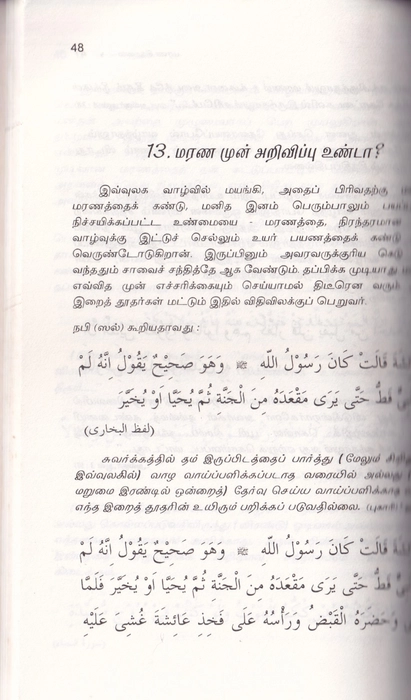 48
13. மரண முன் அறிவிப்பு உண்டா?
இவ்வுலக வாழ்வில் மயங்கி, அதைப் பிரிவதற்கு
மரணத்தைக் கண்டு, மனித இனம் பெரும்பாலும்
நிச்சயிக்கப்பட்ட உண்மையை - மரணத்தை, நிரந்தரமா
வாழ்வுக்கு இட்டுச் செல்லும் உயர் பயணத்தைக் கண்டு
வெருண்டோடுகிறான். இருப்பினும் அவரவருக்குரிய கெடு
வந்ததும் சாவைச் சந்தித்தே ஆக வேண்டும். தப்பிக்க முடியாது
எவ்வித முன் எச்சரிக்கையும் செய்யாமல் திடீரென வரும்
இறைத் தூதர்கள் மட்டும் இதில் விதிவிலக்குப் பெறுவர்.
நபி (ஸல்) கூறியதாவது :
قَالَتْ كَانَ رَسُوْلُ اللّٰه ﷺ وَهَوَ صَحِيْحٌ يَقُوْلُ اِنَّهُ لَمْ
قَطُّ حَتّٰى يَرٰى مَقْعَدَهُ مِنَ الْجَنَّةِ ثُمَّ يُحَيَّا اَوْ يُخَيَّرَ
(لفظ البخارى)
சுவர்க்கத்தில் தம் இருப்பிடத்தைப் பார்த்து (மேலும்
இவ்வுலகில்) வாழ வாய்ப்பளிக்கப்படாத வரையில்
மறுமை இரண்டில் ஒன்றைத்) தேர்வு செய்ய வாய்ப்பளிக்காத
எந்த இறைத் தூதரின் உயிரும் பறிக்கப் படுவதில்லை.
قَالَتْ كَانَ رَسُوْلُ اللّٰهِ ﷺ وَهَوَ صَحِيْحٌ يَقُوْلُ اِنَّهُ لَمْ
قَطُّ حَتّٰى يَرٰى مَقْعَدَهُ مِنَ الْجَنَّةِ ثُمَّ يُحَيَّا اَوْ يُخَيَّرَ فَلَمَّا
وَحَضَرَهُ الْقَبْضُ وَرَأْسُهُ عَلٰى فَخِذِ عَائِشَةَ غُشِىَ عَلَيْهِ